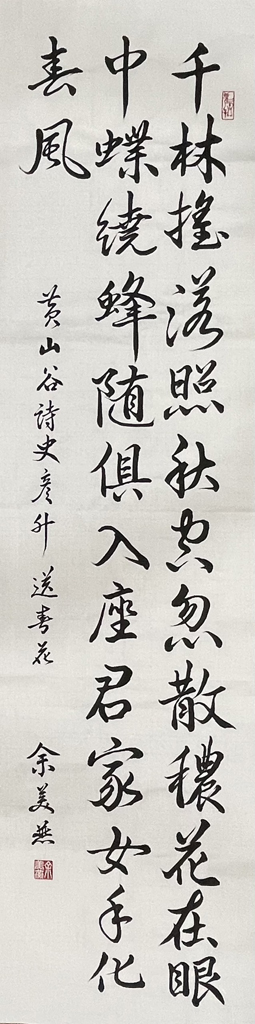 千林搖落照秋空忽散穠花在眼
中蝶繞蜂隨俱入座君家女手化
春風
黃山谷詩史彥升送春花
余美燕